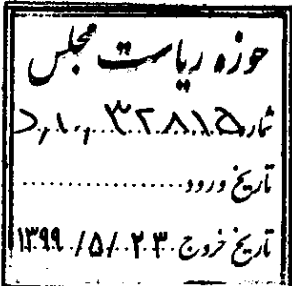 حوزه ریاست مجلس
شماره ۳۲۸۱۵/۱۰/د
تاریخ ورود ...................
تاریخ خروج ۱۳۹۹/۵/۲۳